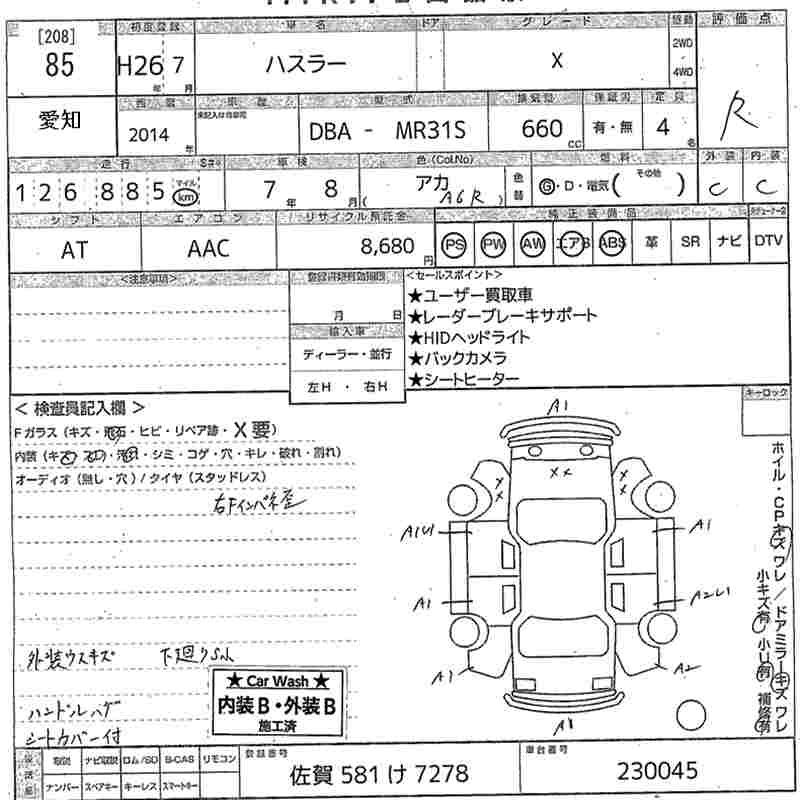 [208]
85
初度登録
H26 7
年 月
車名
ハスラー
ドア
グレード
X
駆動
2WD
4WD
評価点
R
愛知
西暦
2014 年
車歴
未記入は自家用
型式
DBA - MR31S
排気量
660 cc
保証書
有・無
定員
4 名
走行
126,885
マイル
km
S#
車検
7 年 8 月
色(Col.No)
アカ
( A6R )
色替
燃料
G・D・電気( その他 )
外装
C
内装
C
シフト
AT
エアコン
AAC
リサイクル預託金
8,680 円
純正装備品
PS PW AW エアB ABS 革 SR ナビ
DTV
<注意事項>
登録書類有効期限
月 日
輸入車
ディーラー・並行
左H ・ 右H
<セールスポイント>
★ユーザー買取車
★レーダーブレーキサポート
★HIDヘッドライト
★バックカメラ
★シートヒーター
キーロック
< 検査員記入欄 >
Fガラス (キズ・飛石・ヒビ・リペア跡・X要)
内装 (キズ・シミ・コゲ・穴・キレ・破れ・割れ)
オーディオ (無し・穴) / タイヤ (スタッドレス)
右Fインパネ歪
外装ウスキズ 下廻りSル
ハンドルハゲ
シートカバー付
★ Car Wash ★
内装B・外装B
施工済
A1
A1
A1
A2
A2
A1
ホイル・CPキズ ワレ / ドアミラーキズ ワレ
小キズ有 小U有 補修有
取説 ナビ取説 ロム/SD B-CAS リモコン
ナンバー スペアキー キーレス スマートキー
登録番号
佐賀 581 け 7278
車台番号
230045